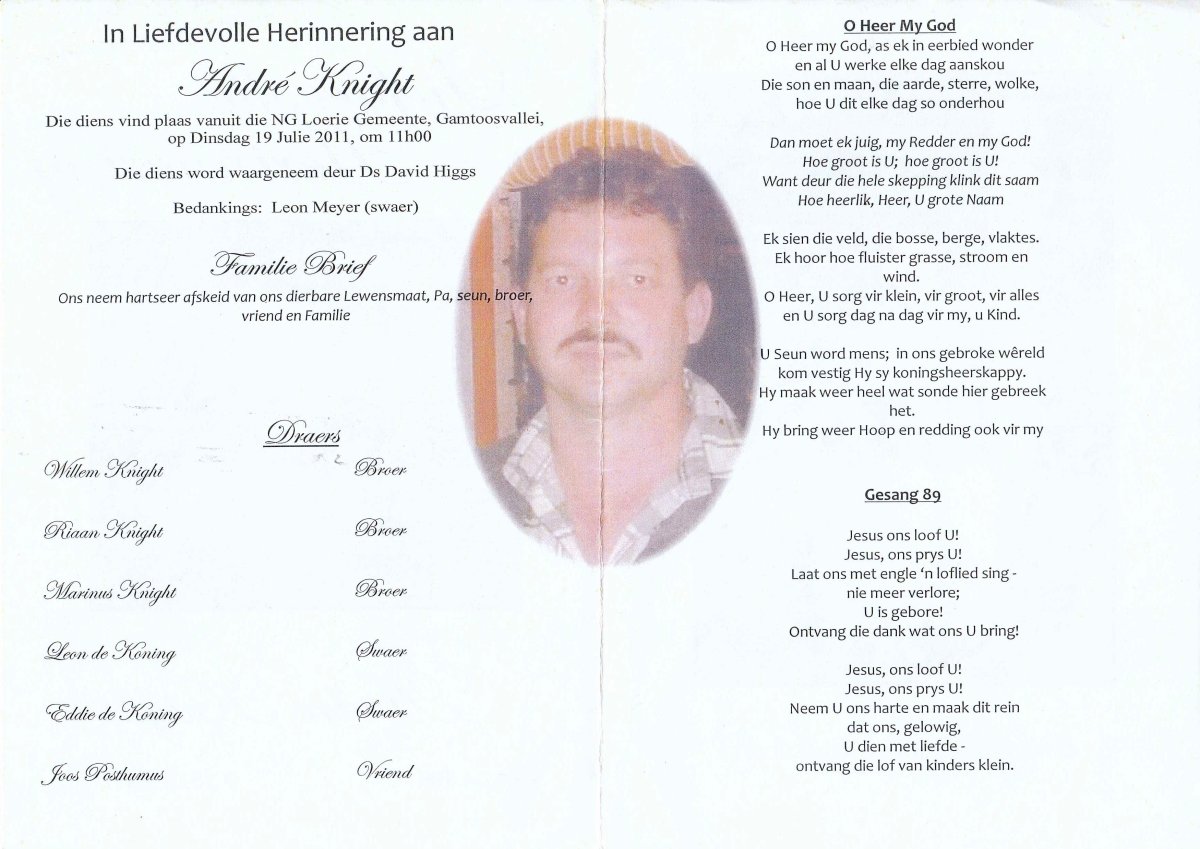 In Liefdevolle Herinnering aan
André Knight
Die diens vind plaas vanuit die NG Loerie Gemeente, Gamtoosvallei,
op Dinsdag 19 Julie 2011, om 11h00
Die diens word waargeneem deur Ds David Higgs
Bedankings:  Leon Meyer (swaer)
Familie Brief
Ons neem hartseer afskeid van ons dierbare Lewensmaat, Pa, seun, broer,
vriend en Familie
Draers
Willem Knight Broer
Riaan Knight Broer
Marinus Knight Broer
Leon de Koning Swaer
Eddie de Koning Swaer
Joos Posthumus Vriend
O Heer My God
O Heer my God, as ek in eerbied wonder
en al U werke elke dag aanskou
Die son en maan, die aarde, sterre, wolke,
hoe U dit elke dag so onderhou
Dan moet ek juig, my Redder en my God!
Hoe groot is U;  hoe groot is U!
Want deur die hele skepping klink dit saam
Hoe heerlik, Heer, U grote Naam
Ek sien die veld, die bosse, berge, vlaktes.
Ek hoor hoe fluister grasse, stroom en
wind.
O Heer, U sorg vir klein, vir groot, vir alles
en U sorg dag na dag vir my, u Kind.
U Seun word mens;  in ons gebroke wêreld
kom vestig Hy sy koningsheerskappy.
Hy maak weer heel wat sonde hier gebreek
het.
Hy bring weer Hoop en redding ook vir my
Gesang 89
Jesus ons loof U!
Jesus, ons prys U!
Laat ons met engle ‘n loflied sing -
nie meer verlore;
U is gebore!
Ontvang die dank wat ons U bring!
Jesus, ons loof U!
Jesus, ons prys U!
Neem U ons harte en maak dit rein
dat ons, gelowig,
U dien met liefde -
ontvang die lof van kinders klein.